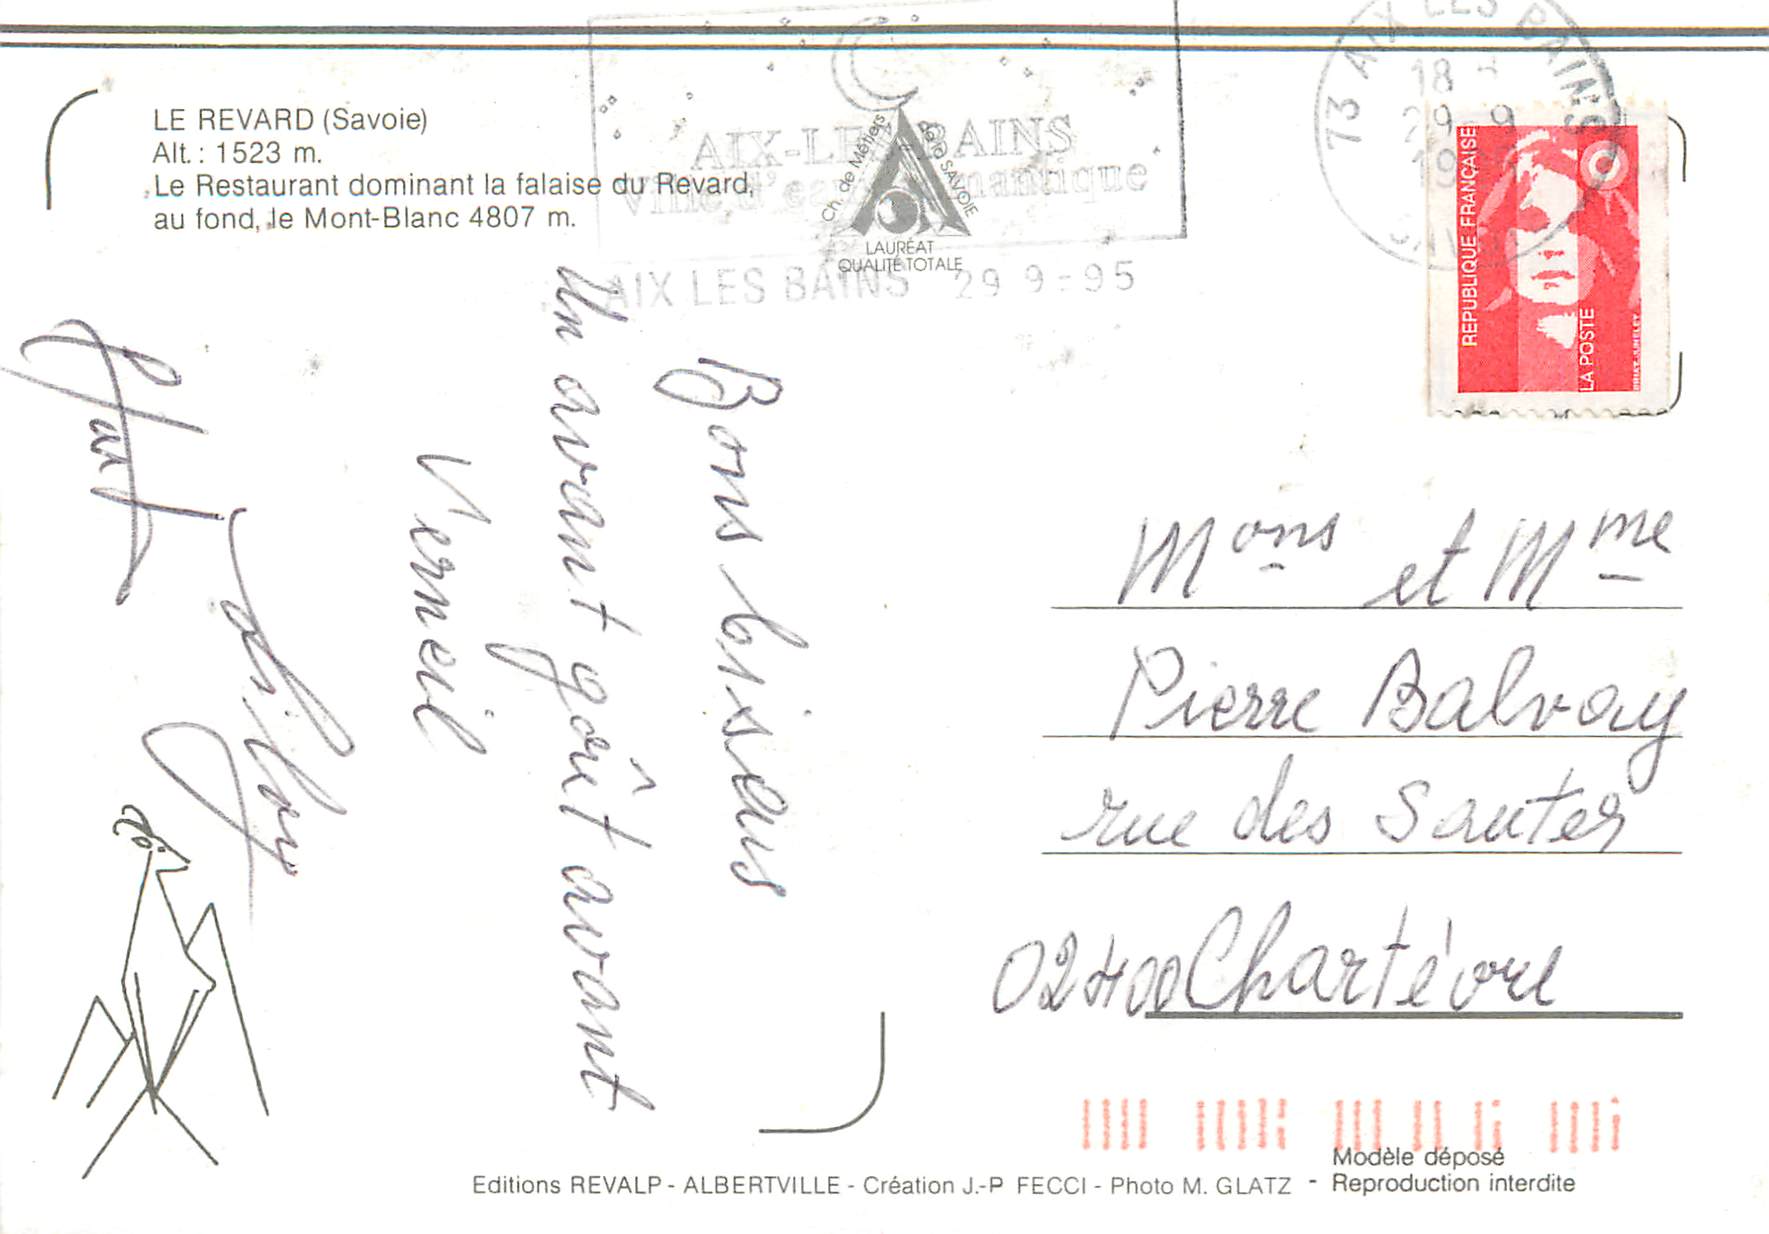 LE REVARD (Savoie)
Alt. : 1523 m.
Le Restaurant dominant la falaise du Revard,
au fond, le Mont-Blanc 4807 m.
AIX-LES-BAINS
Ville d'eau romantique
AIX LES BAINS 29 9-95
Ch. de Métiers de la SAVOIE
LAURÉAT
QUALITÉ TOTALE
73 AIX LES BAINS
18
29-9
19
REPUBLIQUE FRANÇAISE
LA POSTE
BRIAT-JUMELET
Bons baisers
Un avant goût avant
Verneil
Mons et Mme
Pierre Balvay
rue des Sautes
02400 Chartèvre
Editions REVALP - ALBERTVILLE - Création J.-P FECCI - Photo M. GLATZ - Modèle déposé
Reproduction interdite